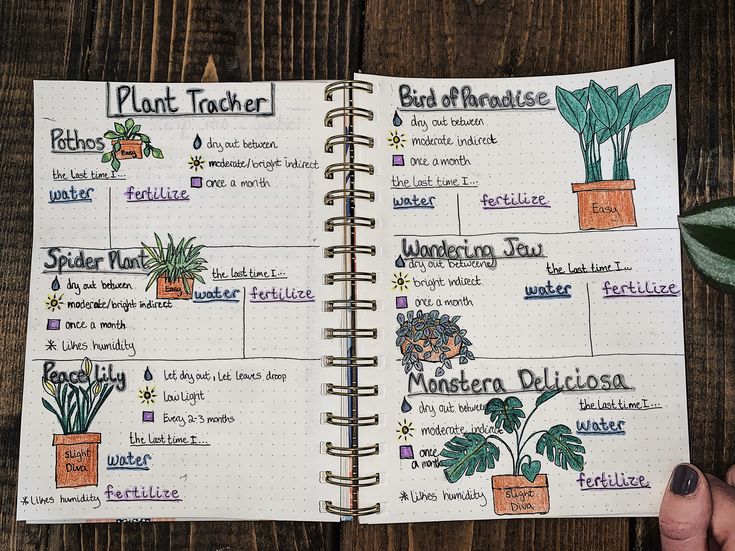 Plant Tracker
Pothos
Easy
dry out between
moderate/bright indirect
once a month
the last time I...
water fertilize
Spider Plant
Easy
the last time I...
dry out between
moderate/bright indirect
once a month
* Likes humidity
water fertilize
Peace Lily
Let dry out, Let leaves droop
Low Light
Every 2-3 months
the last time I...
water
fertilize
Slight
Diva
* Likes humidity
Bird of Paradise
dry out between
moderate indirect
once a month
the last time I...
water fertilize
Easy
Wandering Jew
dry out between
bright indirect
once a month
the last time I...
water fertilize
Monstera Deliciosa
dry out between
moderate indirect
once
a month
* Likes humidity
the last time I...
water
fertilize
Slight
Diva